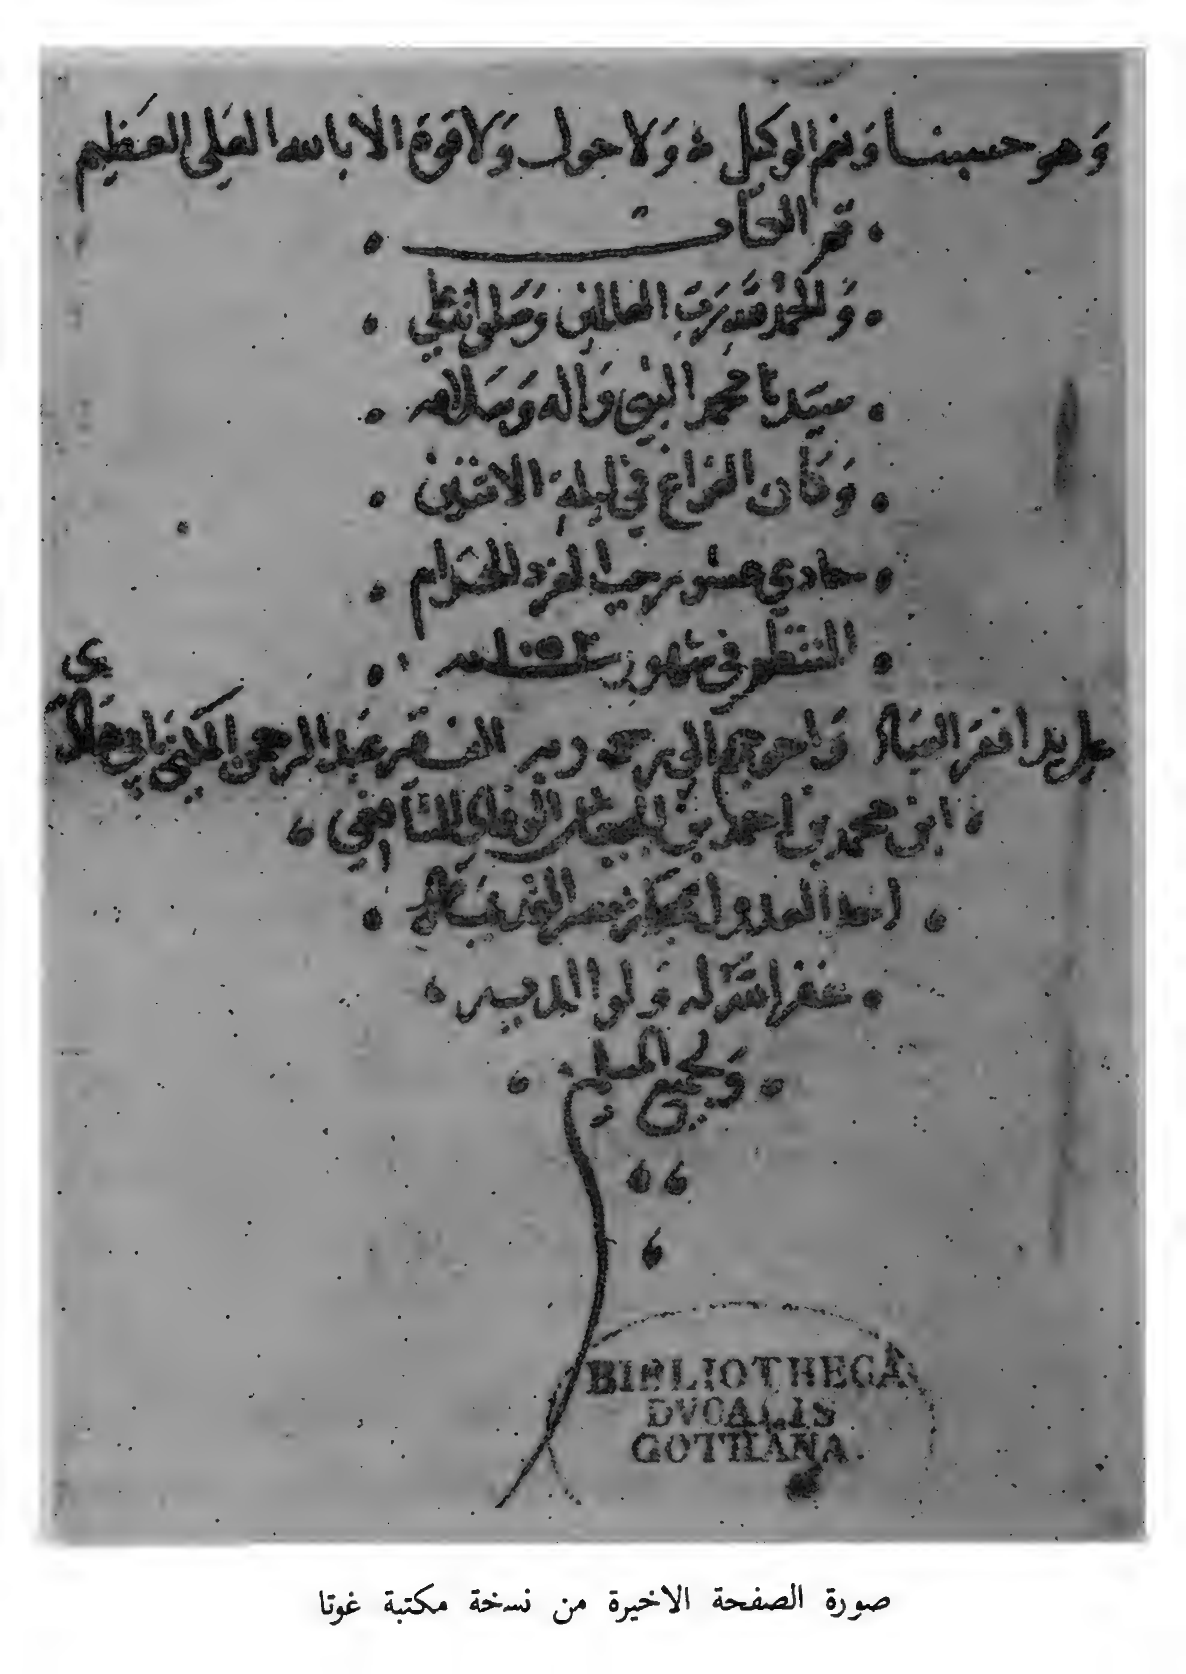 وَهو حسبنا وَنعم الوكيل وَلا حول وَلا قوة الا بالله العَلى العَظيم
تم الكتاب
وَالحمد لله رَب العالمين وَصَلى الله على
سيّدنا محمد النبي وَاله وَسَلامه
وَكان الفراغ في ليلة الاثنين
حادي عشر رجب الفرد الحرام
المنتظم في شهور سنة
على يد افقر العباد وَاحوجهم الى رحمة ربه الفقير عبد الرحمن المكنى بابي
ابن محمد بن احمد بن الوفاي الشافعي
احد العدول بمصر
غفر الله له وَلوالديه
وَلجميع المسلمين
BIBLIOTHECA
DVCALIS
GOTHANA.
صورة الصفحة الاخيرة من نسخة مكتبة غوتا